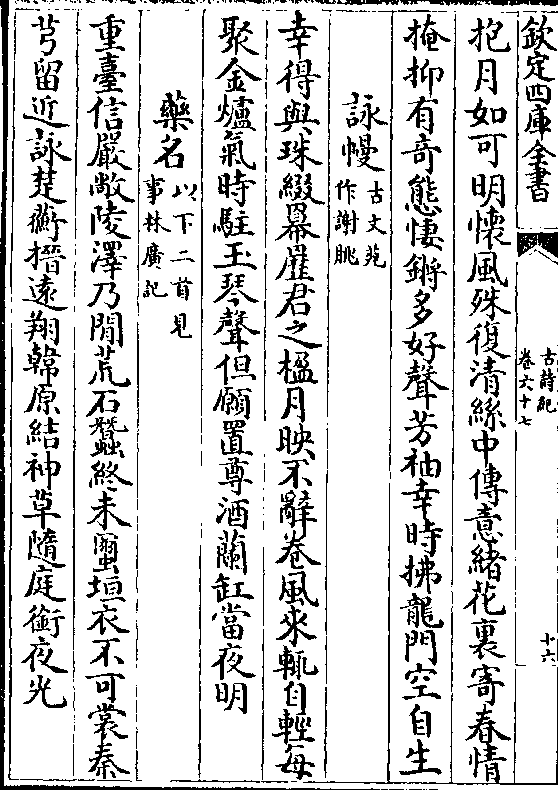 欽定四庫全書
古詩紀
卷六十七
十六
抱月如可明懷風殊復清絲中傳意緒花裏寄春情
掩抑有奇態悽鏘多好聲芳袖幸時拂龍門空自生
詠幔
古文苑
作謝朓
幸得與珠綴羃䍥君之楹月映不辭卷風來輒自輕每
聚金爐氣時駐玉琴聲但願置尊酒蘭缸當夜明
藥名
以下二首見
事林廣記
重臺信嚴敞陵澤乃閒荒石蠶終未蠒垣衣不可裳秦
芎留近詠楚蘅搢遠翔韓原結神草隨庭銜夜光